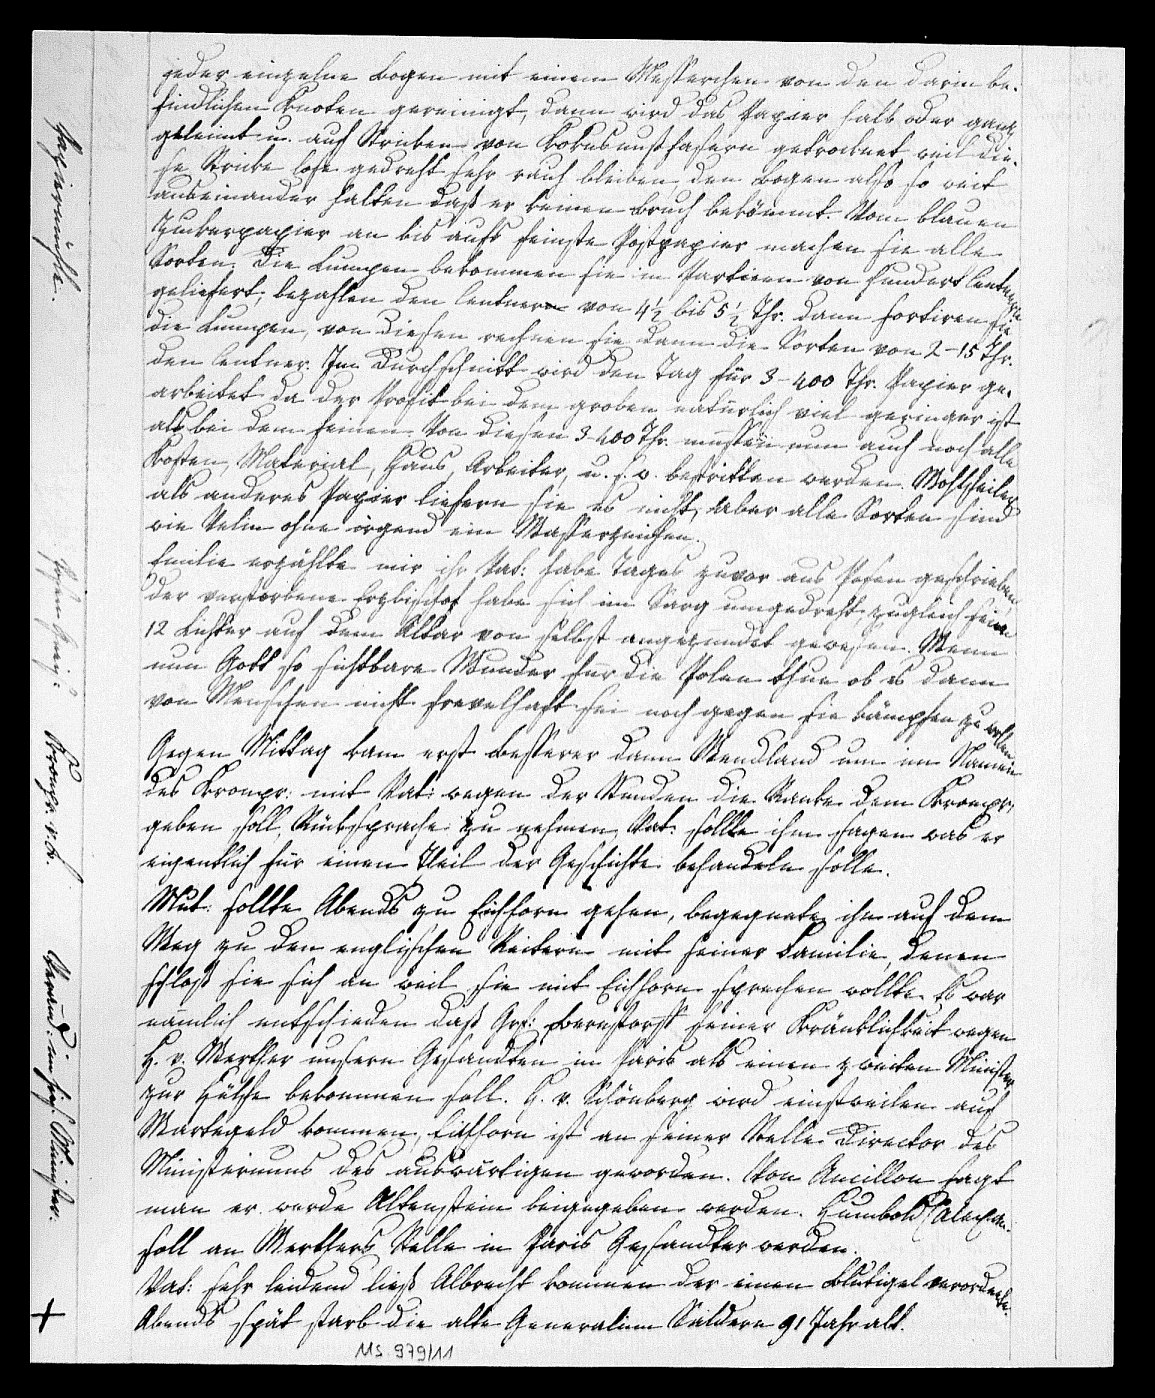 jeder einzelne Bogen mit einem Messerchen von den darin be-
findlichen Knoten gereinigt, dann wird das Papier halb oder ganz
geleimt u. auf Stricken von Kokusnußfasern getrocknet weil die-
se Stricke lose gedreht sehr rauh bleiben den Bogen also so weit
auseinander halten daß er keinen Bruch bekömmt. Vom blauen
Zuckerpapier an bis aufs feinste Postpapier machen sie alle
Sorten. Die Lumpen bekommen sie in Partieen von hundert Centnern
geliefert, bezahlen den Centner von 4½ bis 5½ Thr. dann sortiren sie
die Lumpen, von diesen rechnen sie dann die Sorten von 2-15 Thr.
den Centner. Im Durchschnitt wird den Tag für 3-400 Thr. Papier ge-
arbeitet da der Profit bei dem groben natürlich viel geringer ist
als bei dem feinen. Von diesen 3-400 Thr. müssen nun auch noch alle
Kosten, Material, Haus, Arbeiter, u. s. w. bestritten werden. Wohlfeiler
als anderes Papier liefern sie es nicht, aber alle Sorten sind
wie Velin ohne irgend ein Wasserzeichen.
Emilie erzählte mir ihr Vat: habe Tages zuvor aus Posen geschrieben
der verstorbene Erzbischof habe sich im Sarg umgedreht, zugleich seien
12 Lichter auf dem Altar von selbst angezündet gewesen. Wenn
nun Gott so sichtbare Wunder für die Polen thue ob es dann
von Menschen nicht frevelhaft sei noch gegen sie kämpfen zu wollen
Gegen Mittag kam erst Besserer dann Wendland um im Namen
des Kronpr: mit Vat: wegen der Stunden die Ranke dem Kronpr:
geben soll, Rücksprache zu nehmen, Vat: sollte ihm sagen was er
eigentlich für einen Theil der Geschichte behandeln solle.
Mut: sollte Abends zu Eichhorn gehen, begegnete ihm auf dem
Weg zu den englischen Reitern mit seiner Familie, denen
schloß sie sich an weil sie mit Eichhorn sprechen wollte. Es war
nämlich entschieden daß Grf: Bernstorff seiner Kränklichkeit wegen
H. v. Werther unsern Gesandten in Paris als einen zweiten Minister
zur Hülfe bekommen soll. H. v. Schönberg wird einstweilen auf
Wartegeld kommen, Eichhorn ist an seiner Stelle Director des
Ministeriums des auswärtigen geworden. Von Ancillon sagt
man er werde Altenstein beigegeben werden. Humbold (Alex:)
soll an Werthers Stelle in Paris Gesandter werden.
Vat: sehr leidend ließ Albrecht kommen der einen Blutigel verordnete.
Abends spät starb die alte Generalinn Saldern 91 Jahr alt.
Papiermühle.
Kronpr. v. B.
Minister.
Ms 979/11